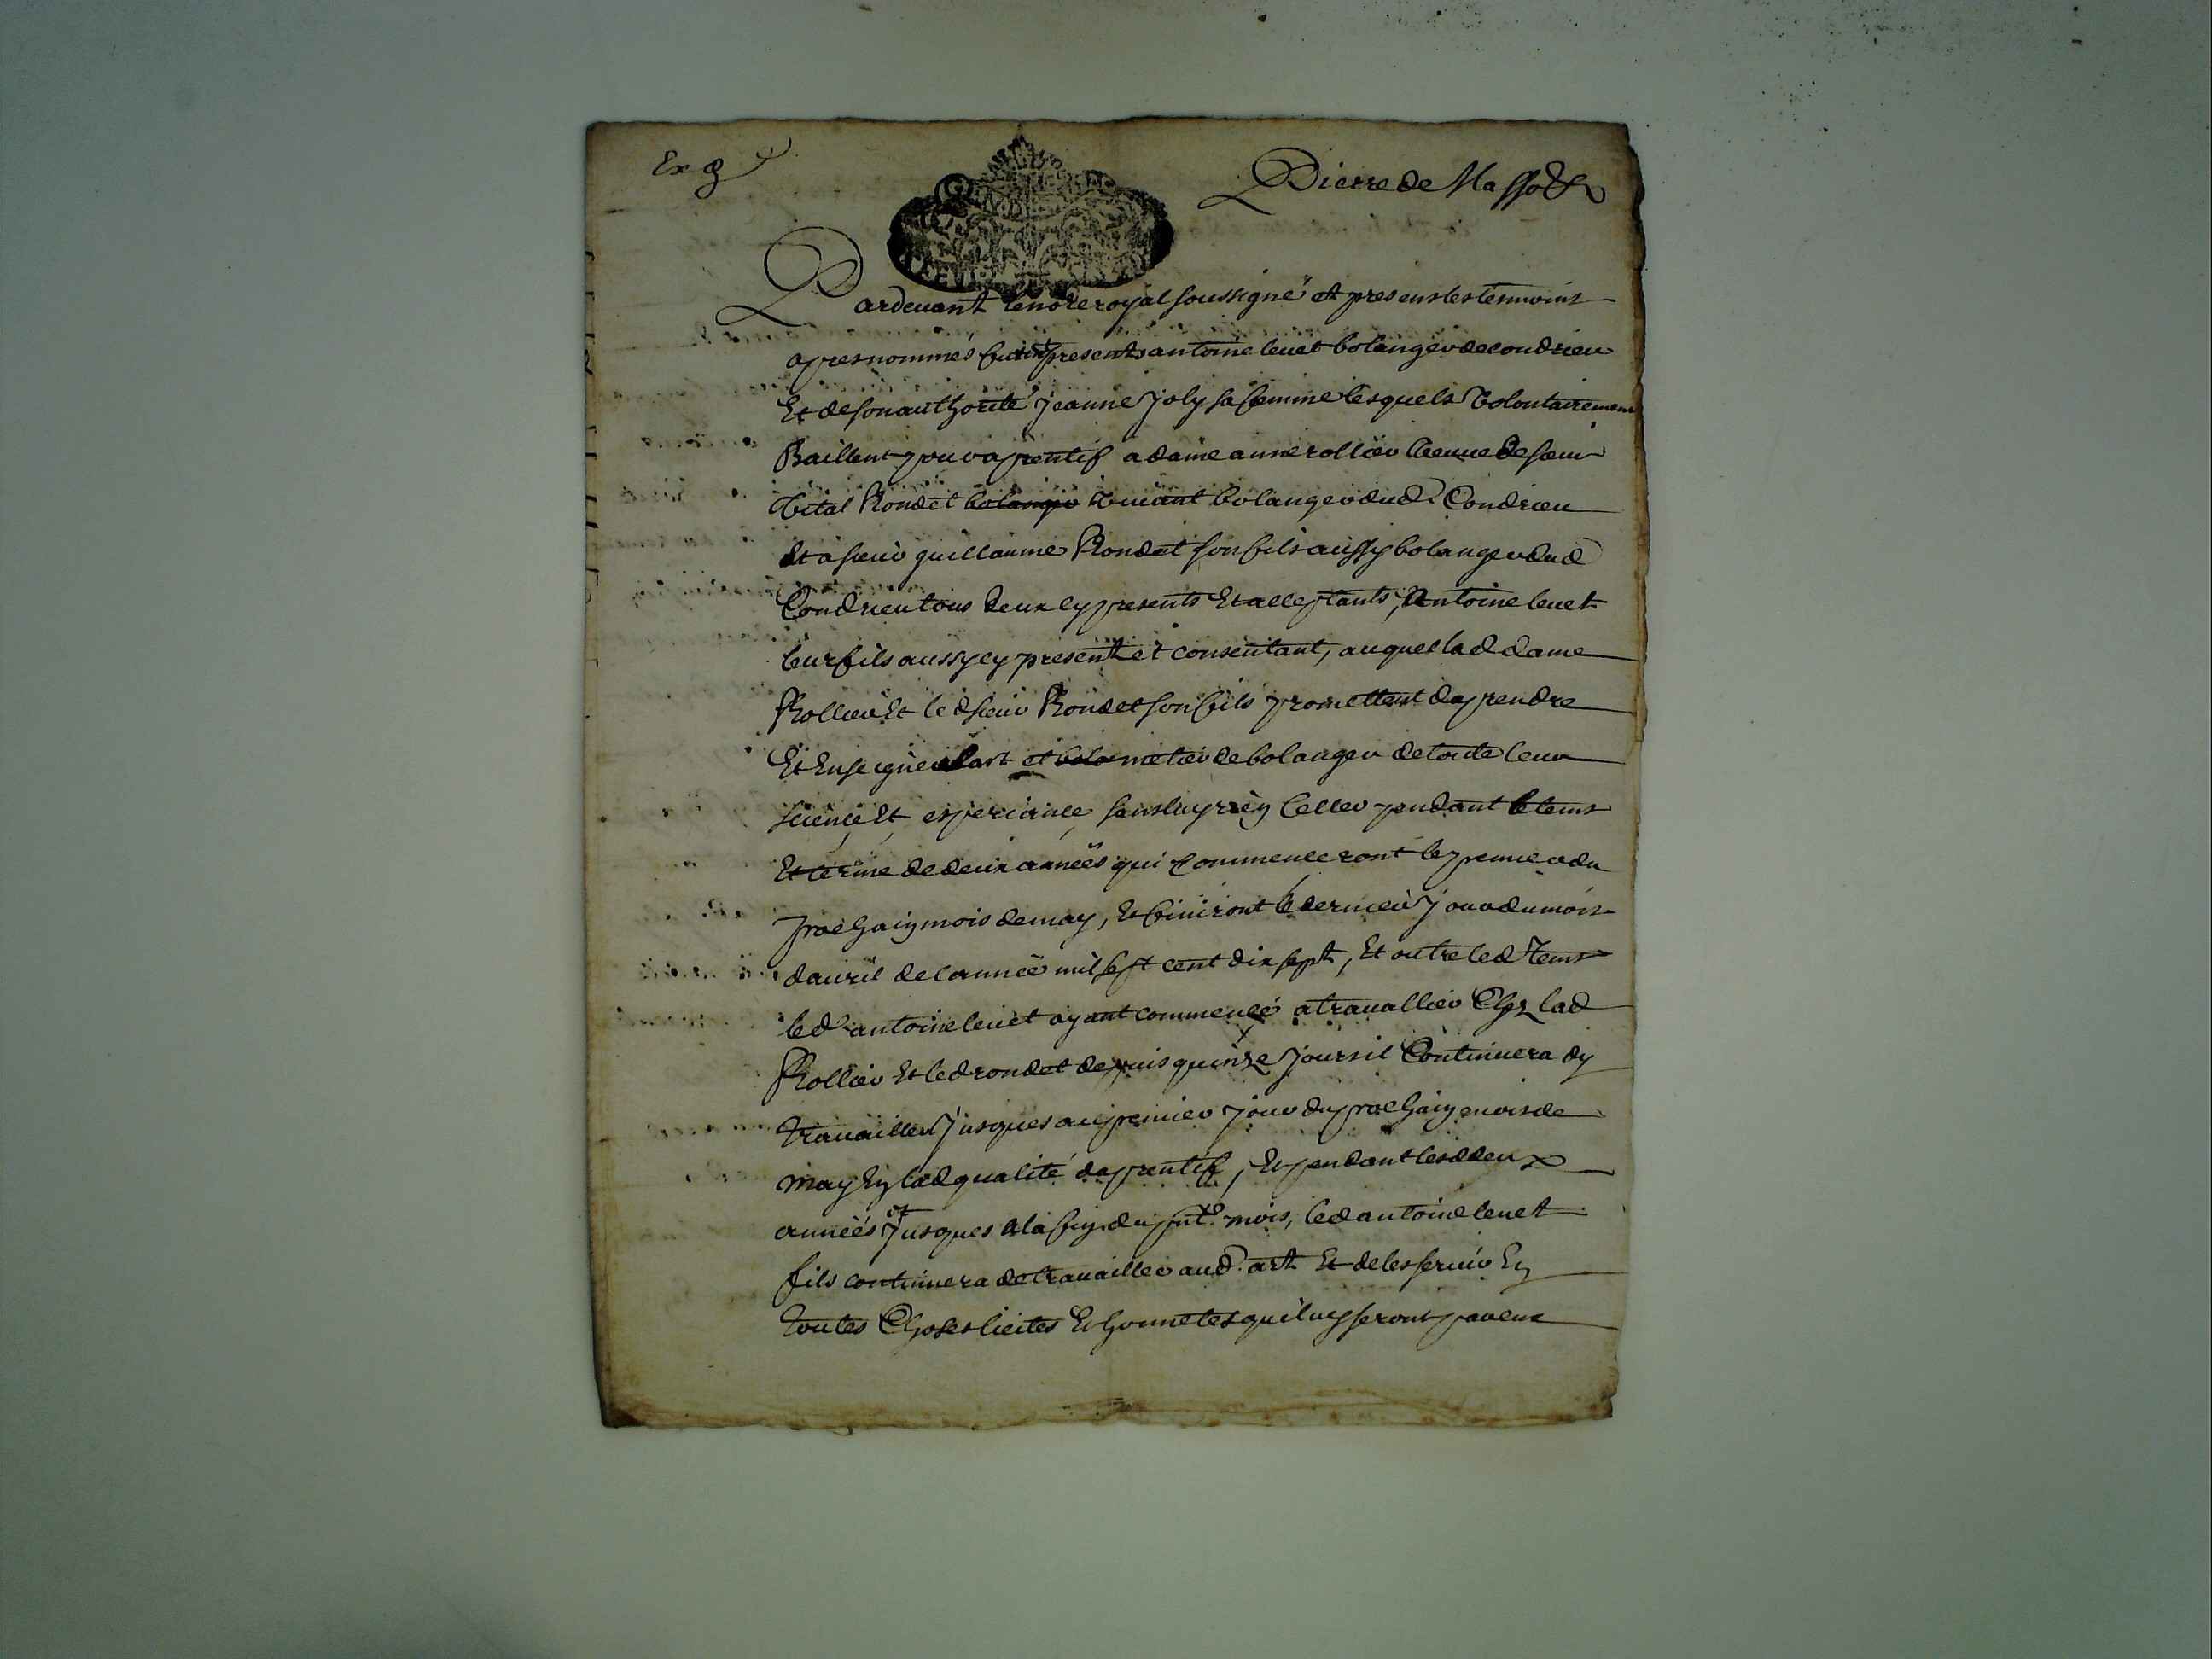 Ex g
Pierre de Masso
Pardevant le nore royal soussigné et presens les tesmoins
apres nommés furent presents antoine levet bolanger de condrieu
Et de son authorité jeanne joly sa femme lesquels volontairement
Baillent pour aprentif a dame anne rollier veuve de sieur
Vital Rondet bolanger vivant bolanger dud. Condrieu
Et a sieur guillaume Rondet son fils aussy bolanger dud
Condrieu tous deux cy presents Et acceptants, Antoine levet
leur fils aussy cy present et consentant, auquel lad dame
Rollier Et led sieur Rondet son fils promettent daprendre
Et Enseigner lart et bola metier de bolanger de toute leur
science Et experiance sans luy rien celler pendant le tems
Et terme de deux années qui commenceront le premier du
prochain mois de may, Et finiront le dernier jour du mois
davril de lannée mil sept cent dix sept, Et outre led tems
led. antoine levet ayant commencé a travallier Chez lad
Rollier Et led rondet depuis quinze jours il Continuera dy
travailler jusques au premier jour du prochain mois de
may En lad qualité daprentif, Et pendant lesd deux
années et jusques a la fin du pnt. mois, led antoine levet
fils continuera de travailler aud. art Et de les servir En
toutes Choses licites Et honnetes qui luy seront par eux